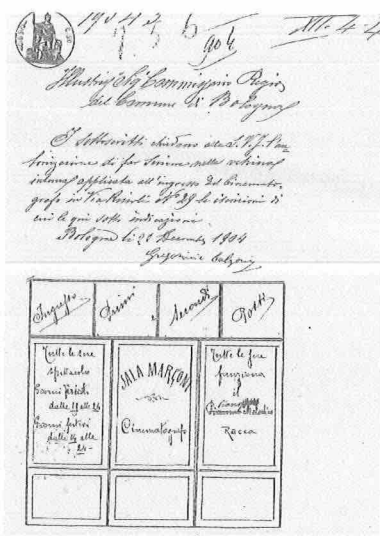 904
Illustris Sig Commissario Regio
del Comune di Bologna
I sottoscritti chiedono alla S.V.I. l'au-
torizzazione di far mettere nella vetrina
interna applicata all'ingresso del Cinemato-
grafo in Via Rizzoli Nº 29 le iscrizioni di
cui le qui sotto indicazioni
Bologna li 22 Dicembre 1904
Ingresso Primi e Secondi Posti
Tutte le sere
spettacolo
Giorni feriali
dalle 17 alle 24
Giorni festivi
dalle 14 alle
24
SALA MARCONI
Cinematografo
Tutte le sere
funziona
il
Piano Melodico
Racca